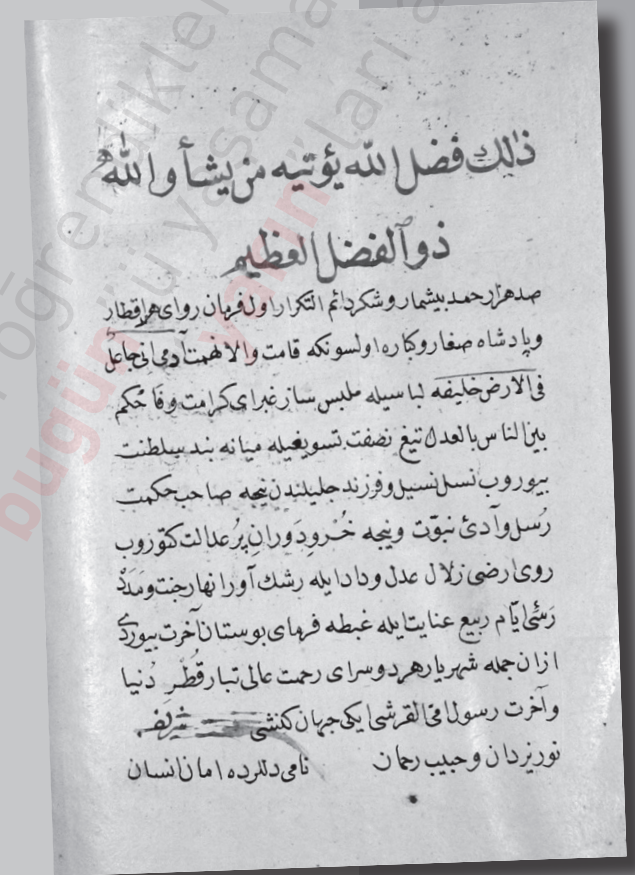 ذلك فضل الله يؤتيه من يشأ والله
ذو الفضل العظيم
صد هزار حمد بيشمار و شكر دائم التكرار اول فرمان رواى هر اقطار
و پادشاه صغار و كباره اولسونكه قامت والانهمت آدمى انى جاعل
فى الارض خليفه لباسيله ملبس ساز غبراى كرامت و فاحكم
بين الناس بالعدل تيغ نصفت تسويغيله ميانه بند سلطنت
بيوروب نسل نسيل و فرزند جليلندن نيجه صاحب حكمت
رسل وآدئ نبوت و نيجه خسرو دوران پر عدالت كتوروب
روى ارضى زلال عدل و دادايله رشك آور انهار جنت و مدد
رشى ايام ربيع عنايتايله غبطه فرماى بوستان آخرت بيوردى
ازان جمله شهريار هر دو سراى رحمت عالى تبار قطر دنيا
وآخرت رسول افى القرشى ايكى جهان كنشى شريف
نور يزدان و حبيب رحمان نامى دللرده امان انسان
öğrendikler
ü yaşama
ları a
bugün
yakın